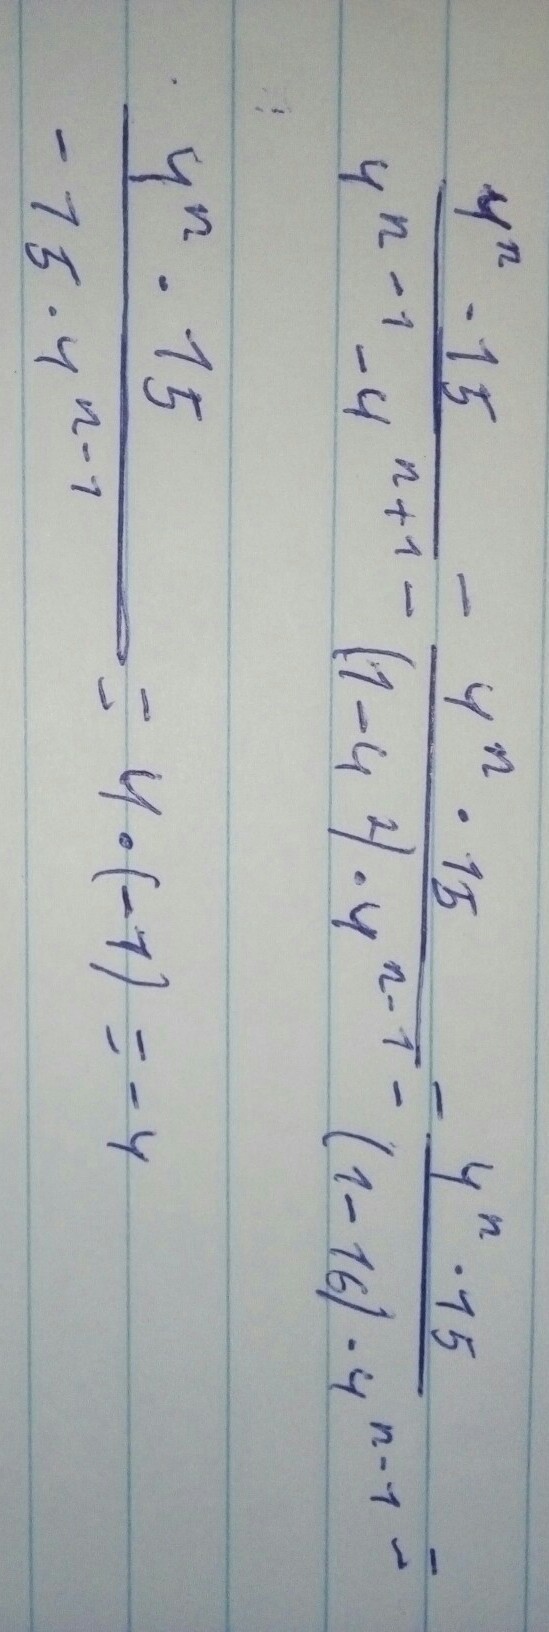 4ⁿ · 15 / 4ⁿ⁻¹ - 4ⁿ⁺¹ = 4ⁿ · 15 / (1-4²) · 4ⁿ⁻¹ = 4ⁿ · 15 / (1-16) · 4ⁿ⁻¹ =
4ⁿ · 15 / -15 · 4ⁿ⁻¹ = 4 · (-1) = -4